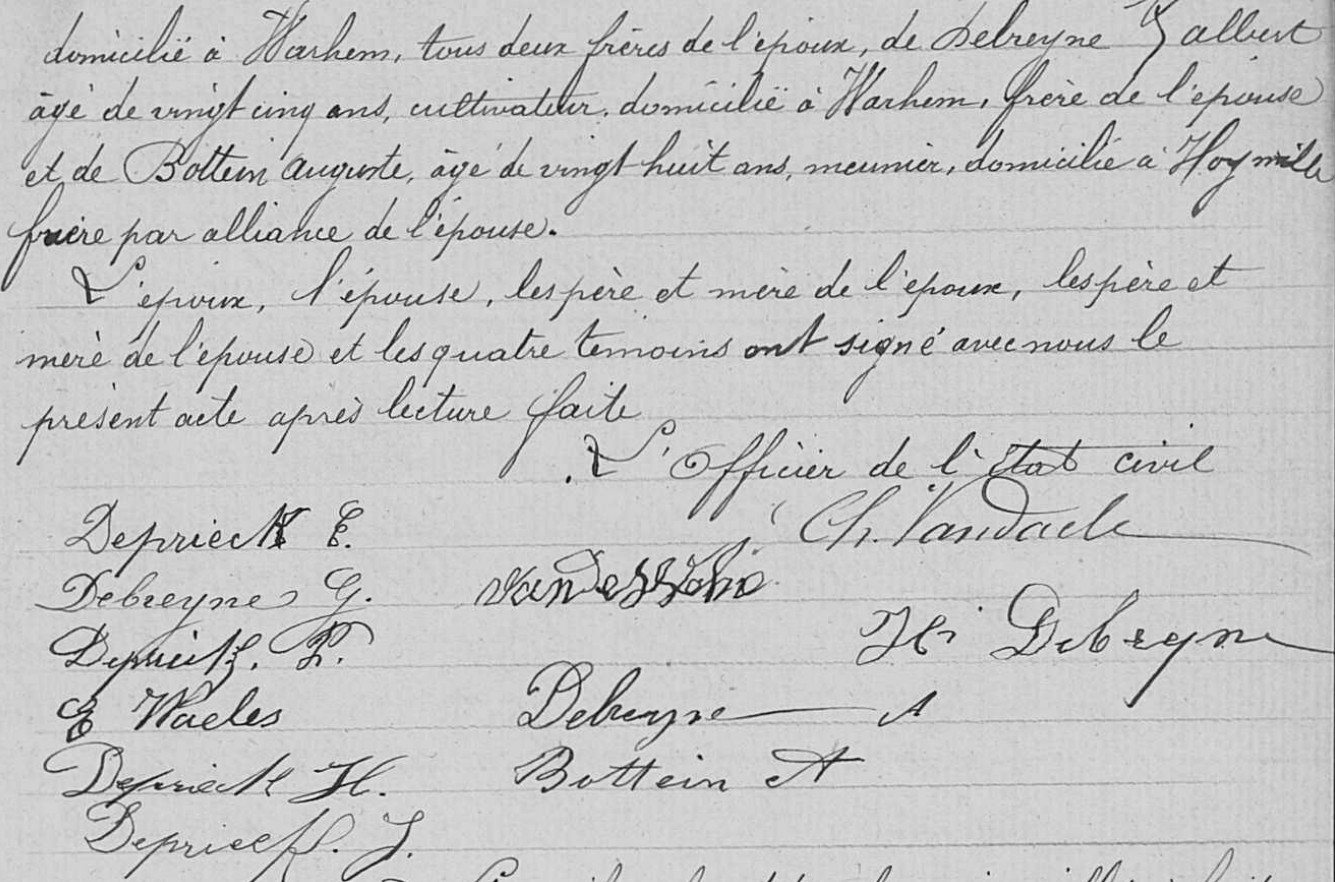 domicilié à Warhem, tous deux frères de l'époux, de Debreyne albert
âgé de vingt cinq ans, cultivateur, domicilié à Warhem, frère de l'épouse
et de Bottein Auguste, âgé de vingt huit ans, meunier, domicilié à Hoymille
frère par alliance de l'épouse.
L'époux, l'épouse, les père et mère de l'époux, les père et
mère de l'épouse et les quatre témoins ont signé avec nous le
présent acte après lecture faite
L'Officier de l'état civil
Deprieck E.
Ch. Vandaele
Debreyne G.
H. Debreyne
Deprieck. P.
E Waeles
Debreyne A
Deprieck H.
Bottein A
Deprieck. J.